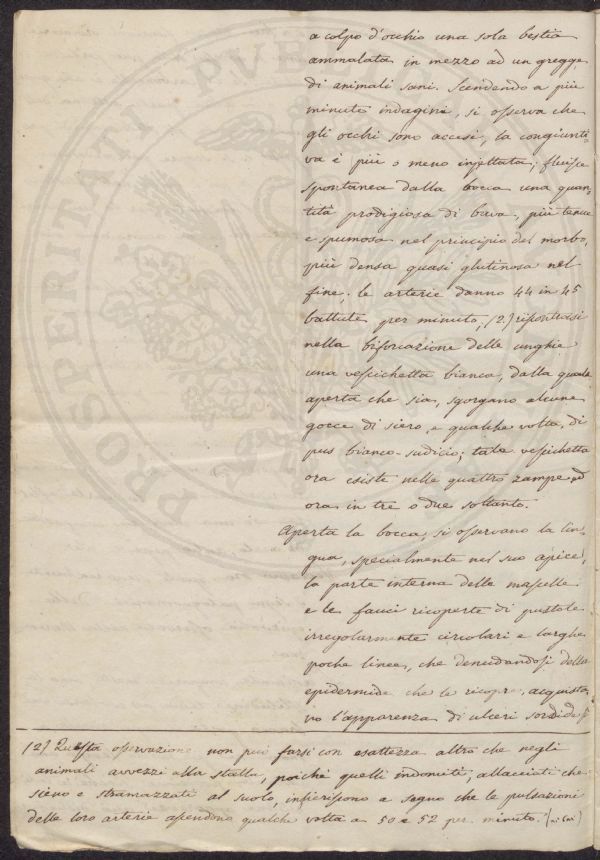 a colpo d'occhio una sola bestia
ammalata in mezzo ad un gregge
di animali sani. Scendendo a più
minute indagini, si osserva che
gli occhi sono accesi, la congiunti-
va è più o meno injettata; fluisce
spontanea dalla bocca una quan-
tità prodigiosa di bava, più tenue
e spumosa nel principio del morbo,
più densa quasi glutinosa nel
fine; le arterie danno 44 in 45
battute per minuto; (2) riscontrasi
nella biforcazione delle unghie
una vescichetta bianca, dalla quale
aperta che sia, sgorgano alcune
gocce di siero, e qualche volta, di
pus bianco-sudicio; tale vescichetta
ora esiste nelle quattro zampe ed
ora in tre o due soltanto.
Aperta la bocca, si osservano la lin-
gua, specialmente nel suo apice,
la parte interna delle mascelle
e le fauci ricoperte di pustole
irregolarmente circolari e larghe
poche linee, che denudandosi della
epidermide che le ricopre, acquista-
no l'apparenza di ulceri sordide
(2) Questa osservazione non può farsi con esattezza altro che negli
animali avvezzi alla stalla, poichè quelli indomiti, allacciati che
sieno e stramazzati al suolo, inferiscono a segno che le pulsazioni
delle loro arterie ascendono qualche volta a 50 e 52 per minuto.
PROSPERITATI PUBLI